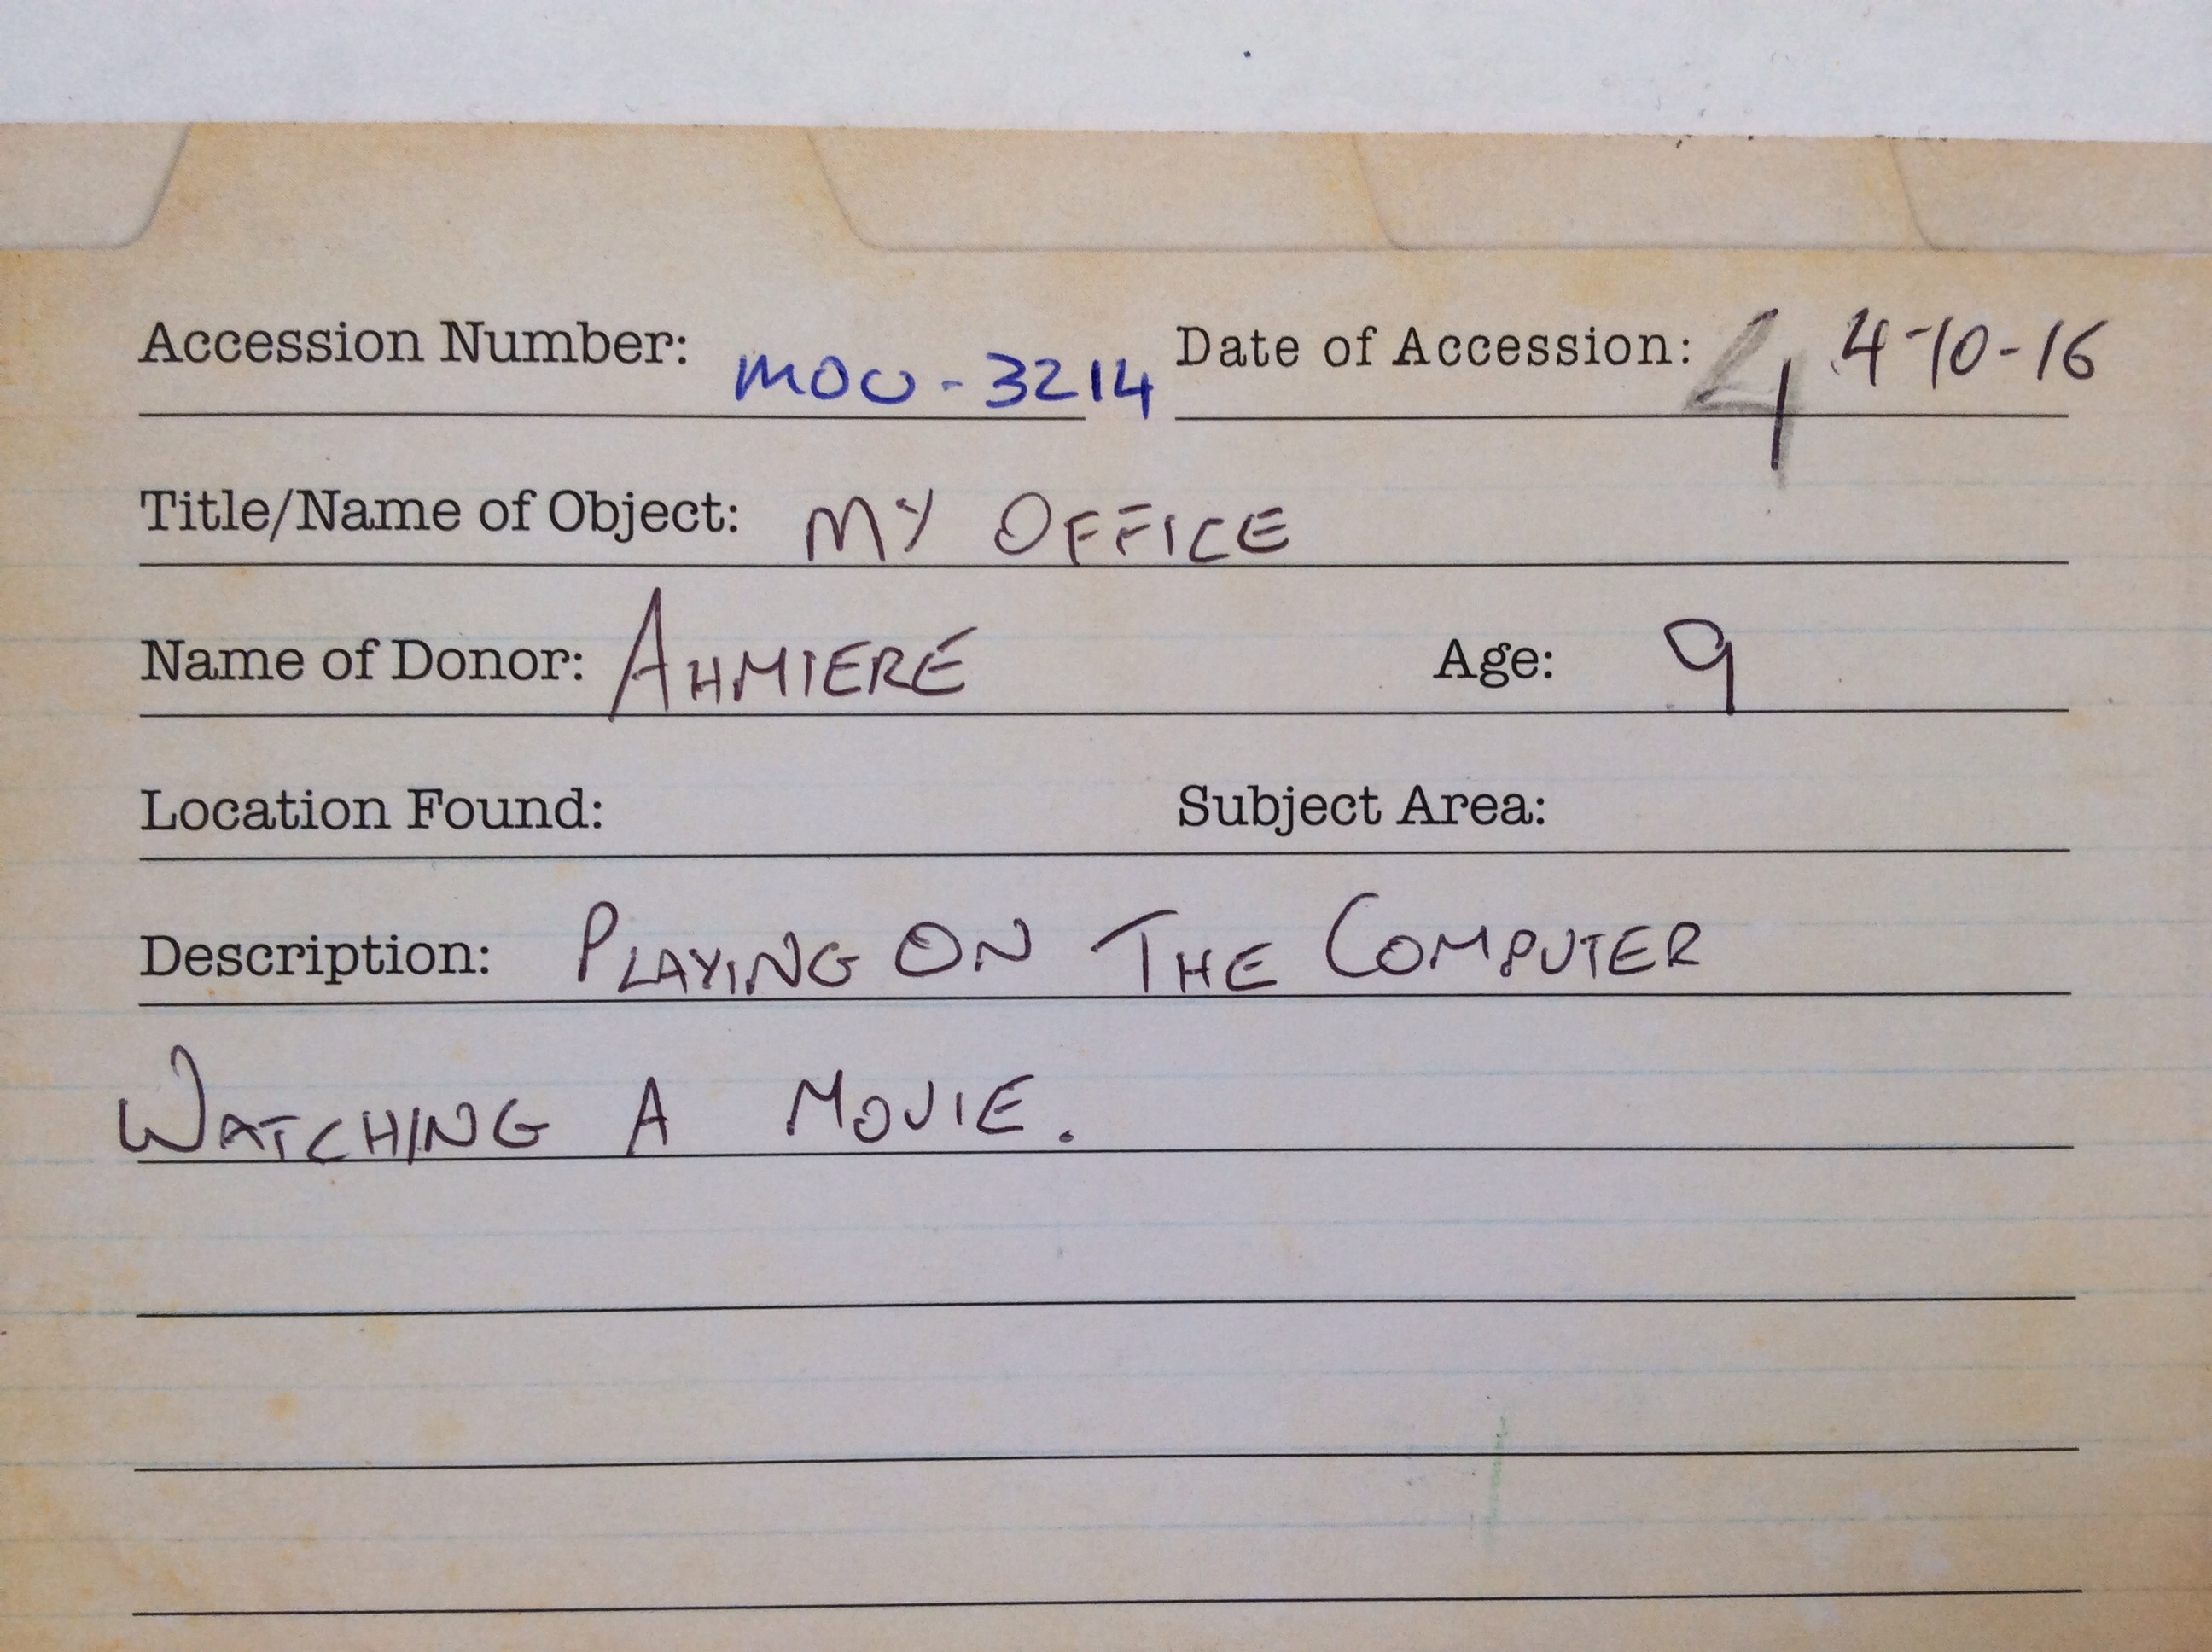 Accession Number: MOU-3214 Date of Accession: 4 4-10-16
Title/Name of Object: MY OFFICE
Name of Donor: AHMIERE Age: 9
Location Found: Subject Area:
Description: PLAYING ON THE COMPUTER
WATCHING A MOVIE.